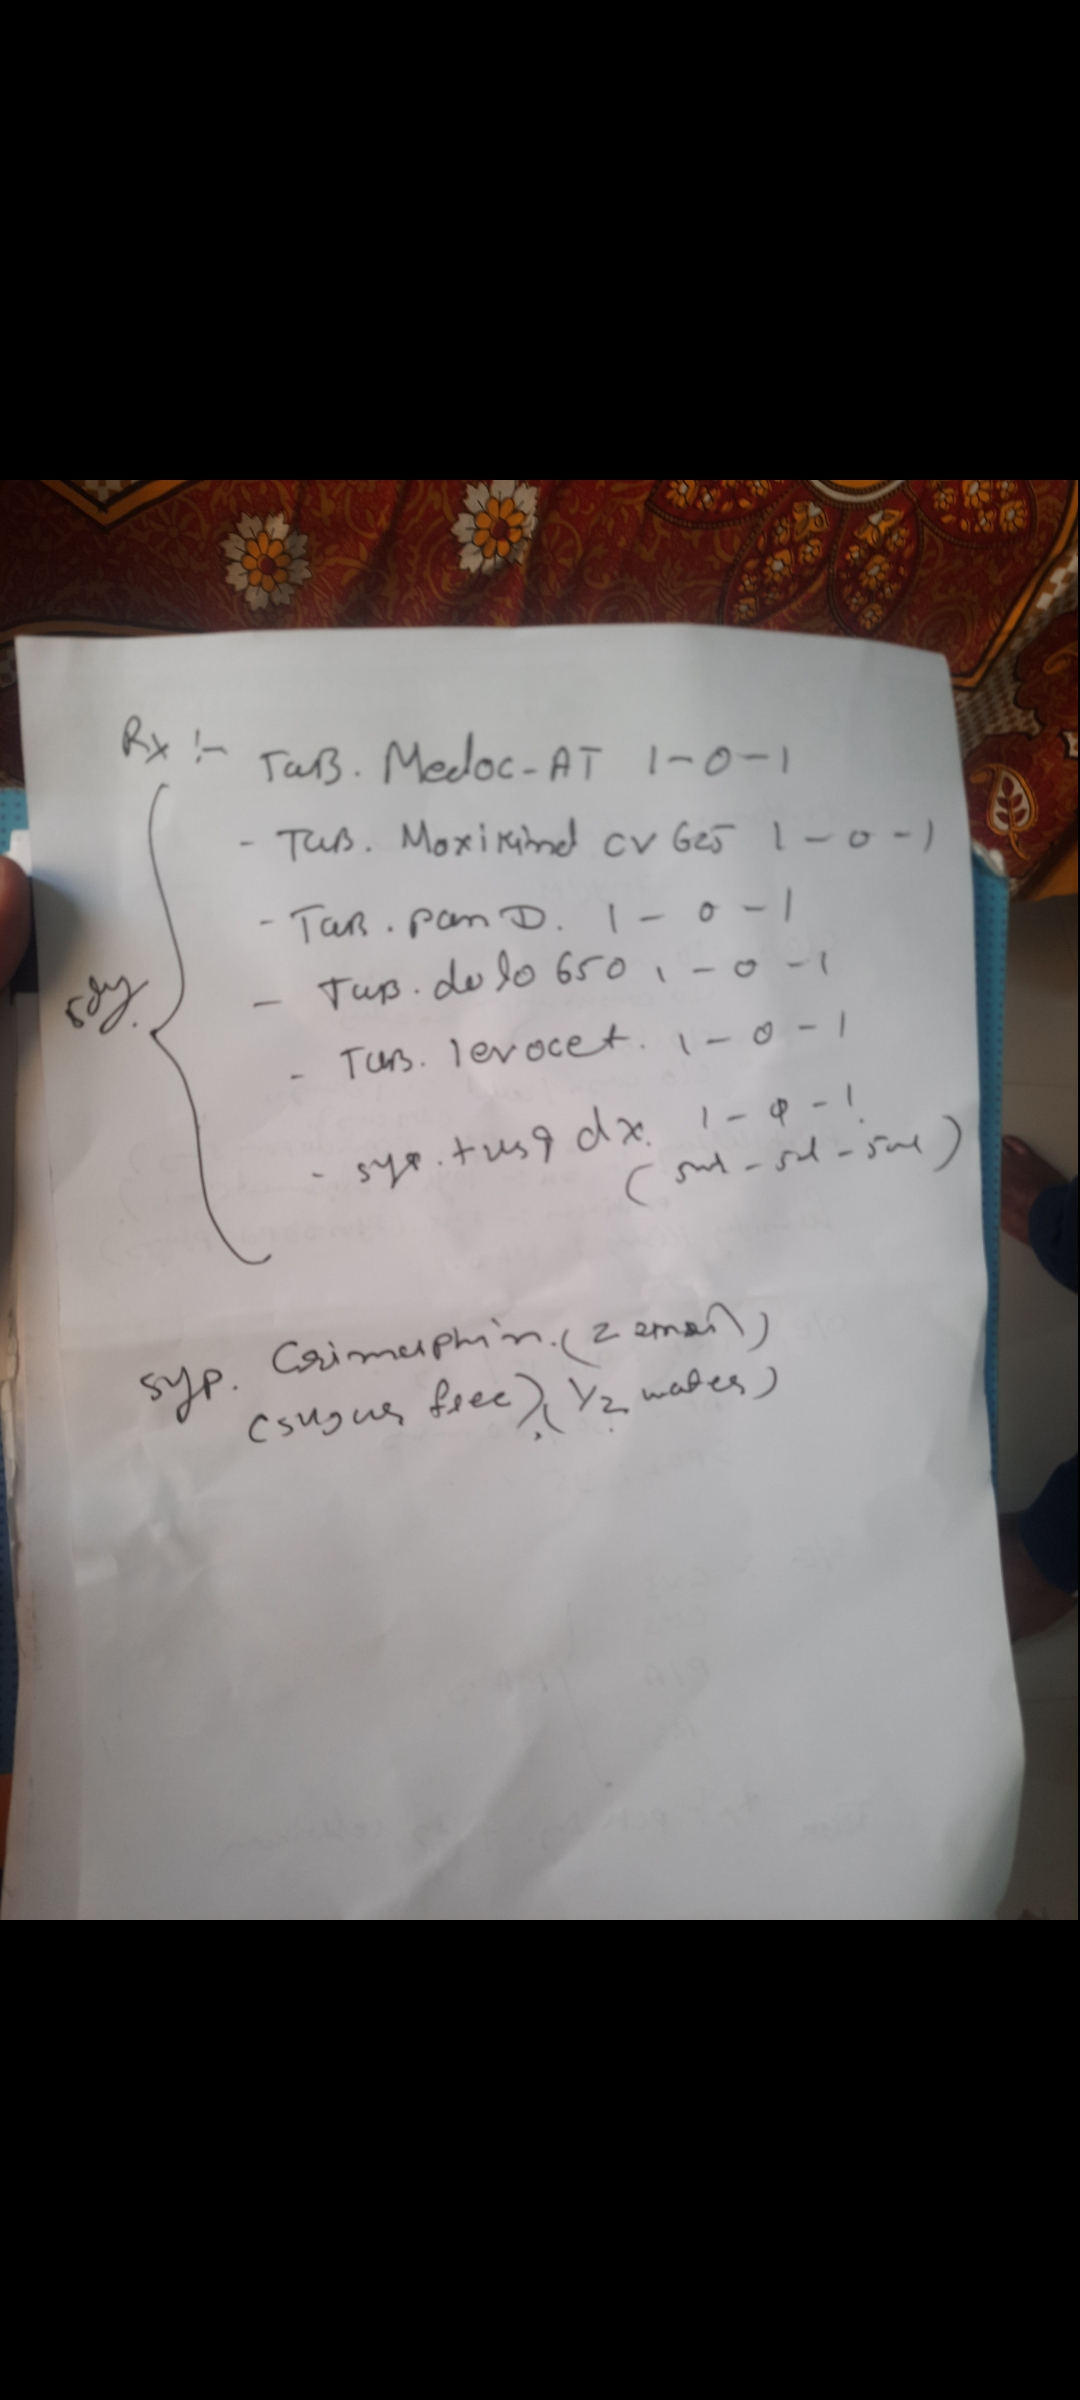 Rx :- Tab. Medoc-AT 1-0-1
- Tab. Moxikind CV 625 1-0-1
- Tab. pan D. 1-0-1
- Tab. dolo 650 1-0-1
5dy. - Tab. levocet. 1-0-1
- syp. tusq dx. 1-φ-1
(5ml-5ml-5ml)
syp. (2
(sugar free), (1/2 water)